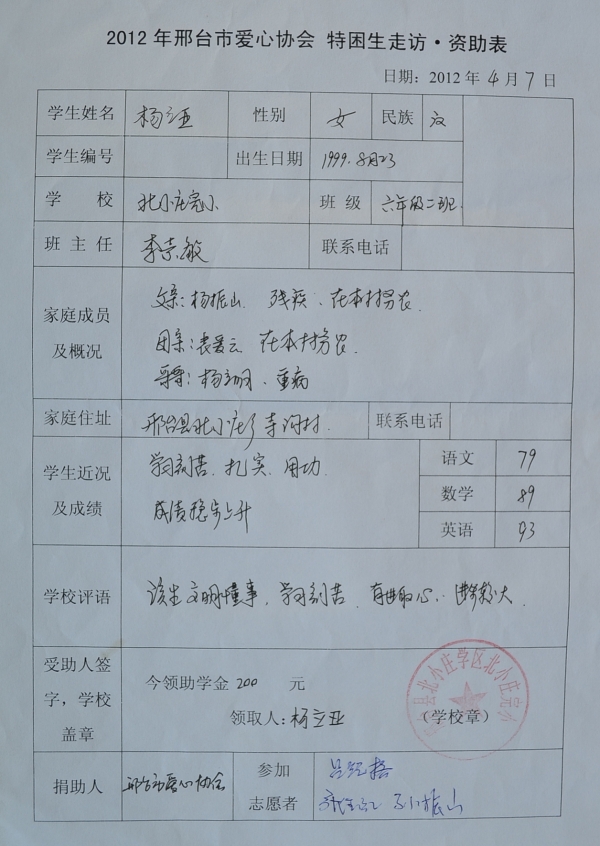 2012年邢台市爱心协会 特困生走访·资助表
日期：2012年4月7日
学生姓名 杨立亚 性别 女 民族 汉
学生编号 出生日期 1999.8月23
学 校 北小庄完小 班 级 六年级二班
班 主 任 李荣敏 联系电话
家庭成员
及概况
父亲：杨振山 残疾、在本村务农
母亲：袁爱云 在本村务农
哥哥：杨 重病
家庭住址 邢台县北小庄乡 村 联系电话
学生近况
及成绩
学习刻苦、扎实、用功
成绩稳步上升
语文 79
数学 89
英语 93
学校评语 该生文明懂事，学习刻苦 有进取心、进步较大
受助人签
字，学校
盖章
今领助学金 200 元
领取人：杨立亚
（学校章）
县北小庄学区北小庄完小
捐助人 邢台市爱心协会
参加
志愿者
振山